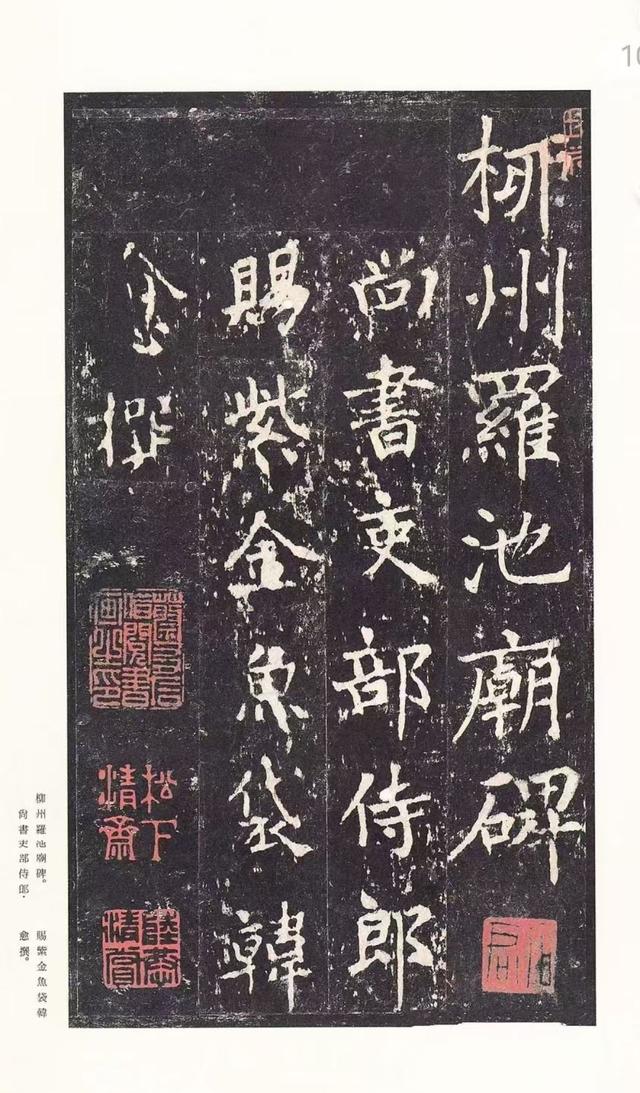 柳州羅池廟碑
尚書吏部侍郎
賜紫金魚袋韓
愈撰
松下
清齋
柳州羅池廟碑。
尚書吏部侍郎·
賜紫金魚袋韓
愈撰。
10